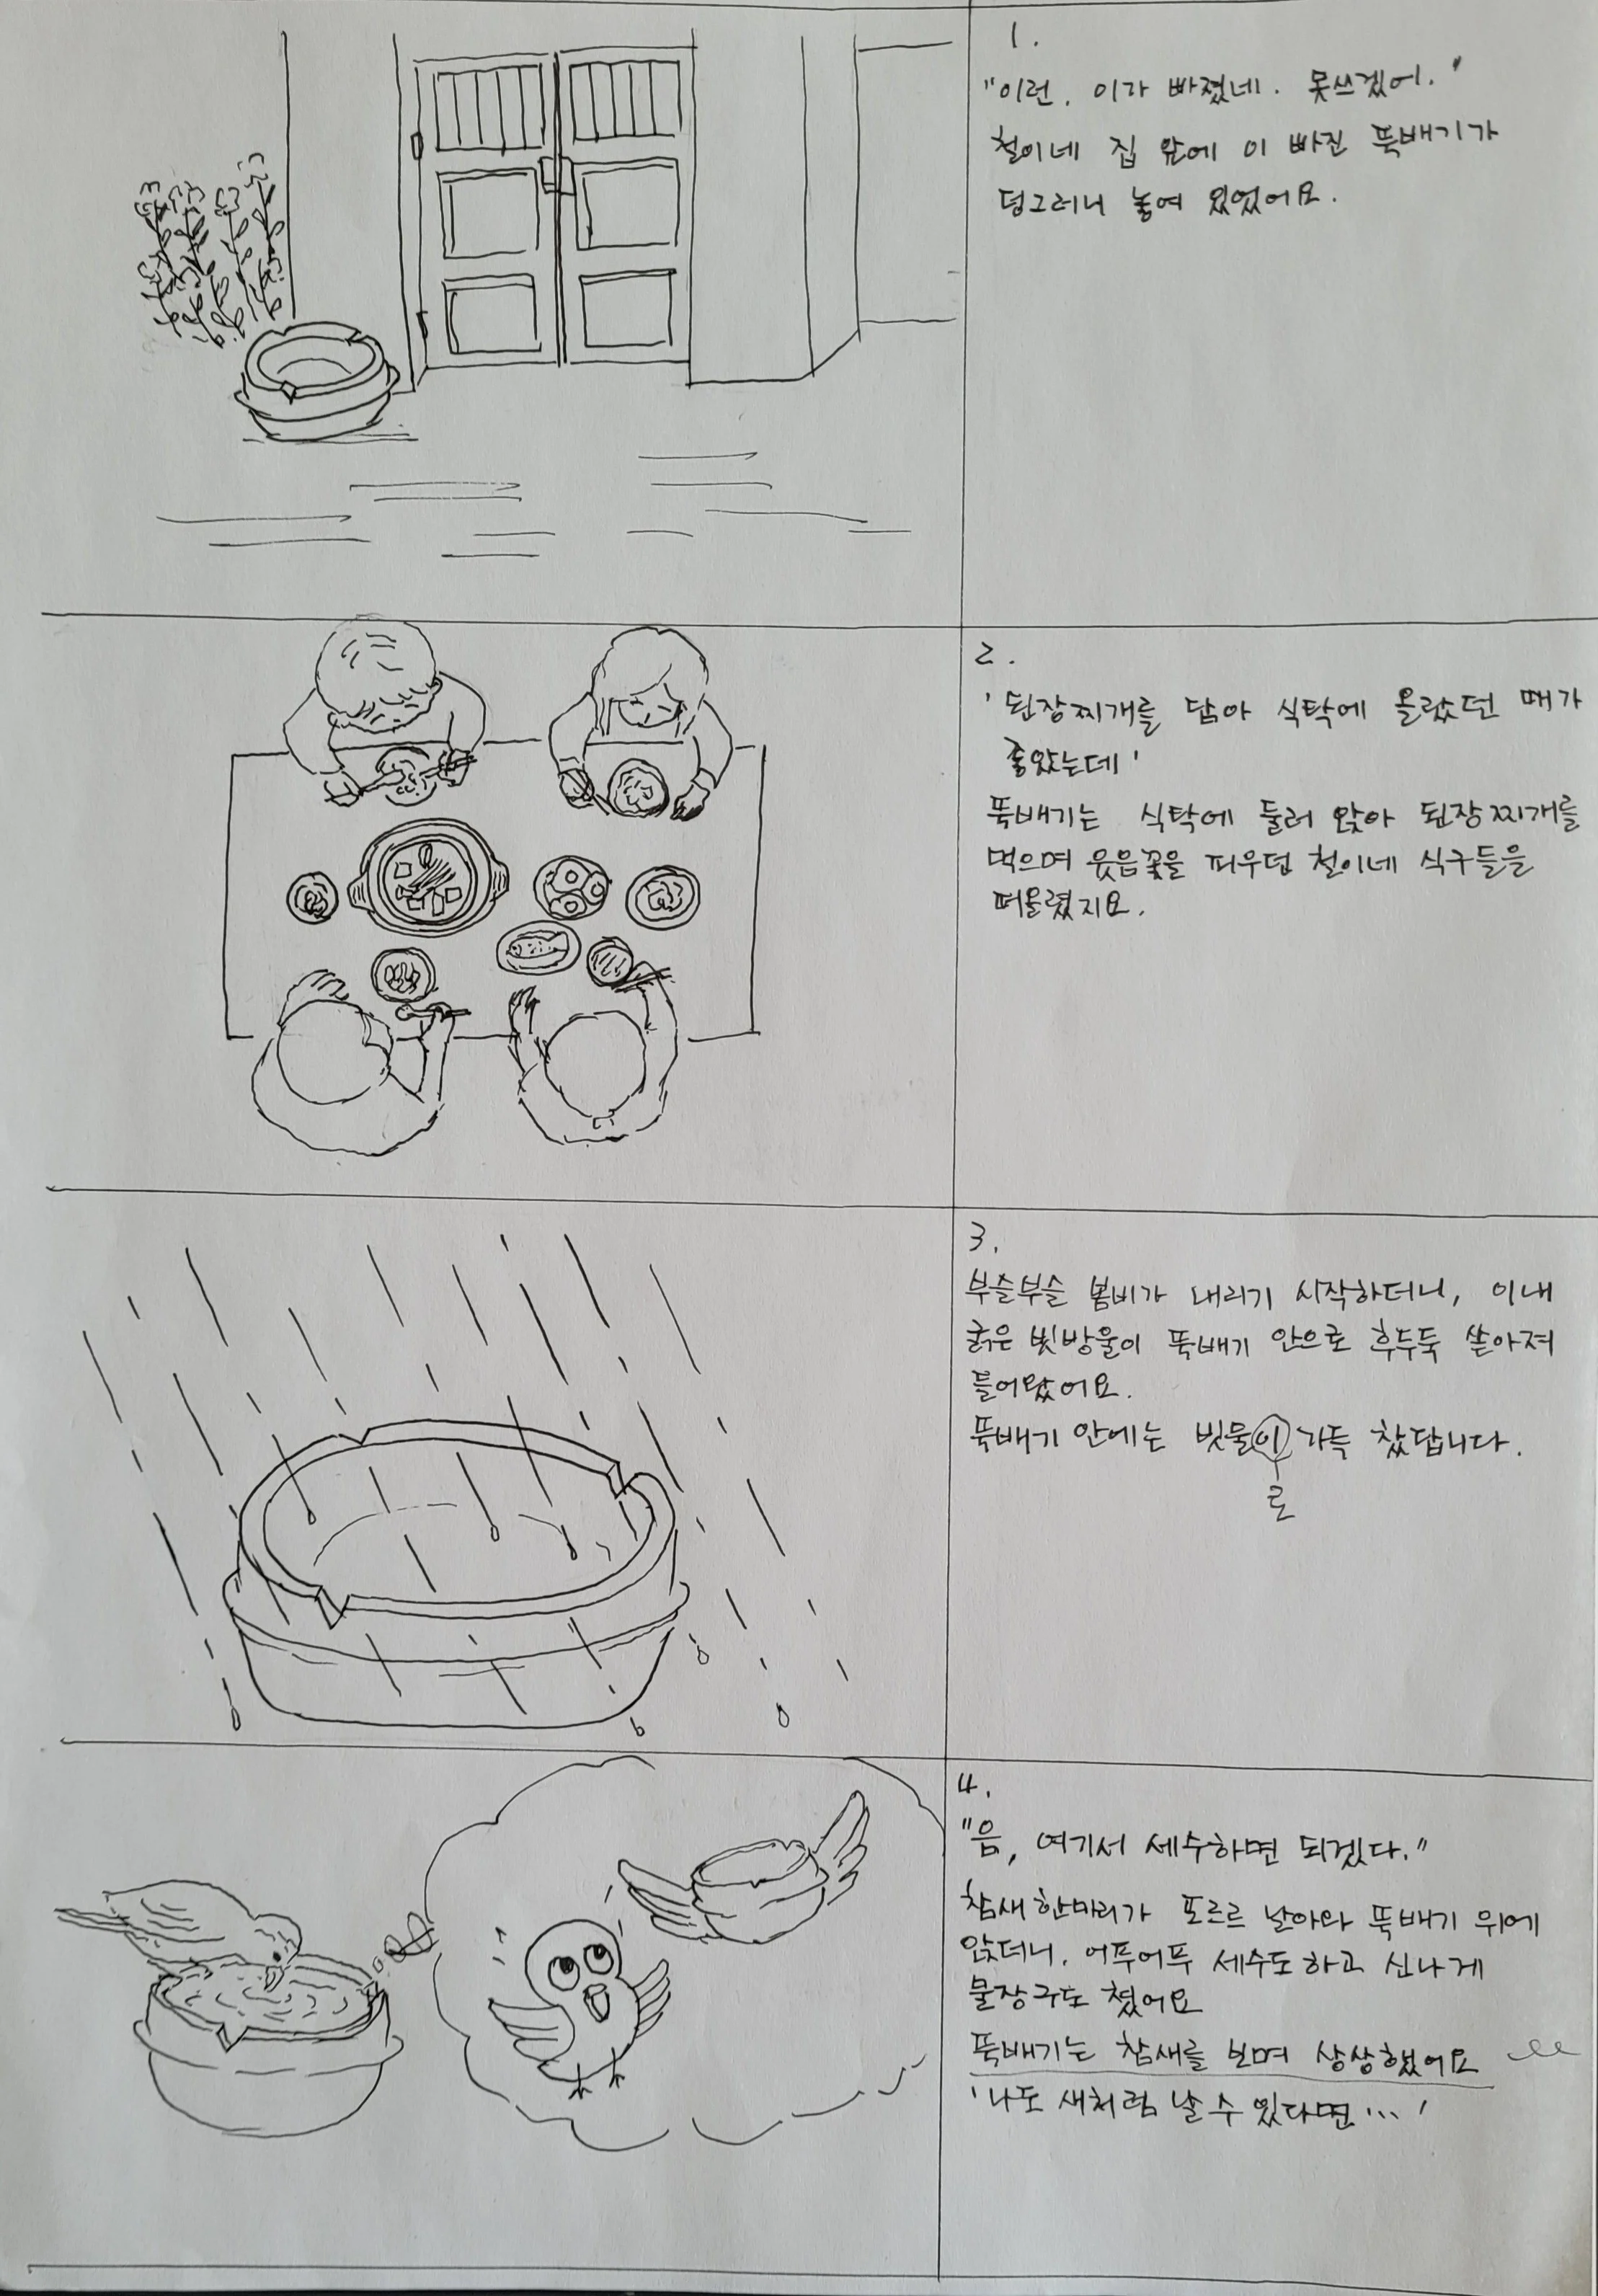 1.
"이런, 이가 빠졌네. 못쓰겠어."
철이네 집 앞에 이 빠진 뚝배기가
덩그러니 놓여 있었어요.
2.
'된장찌개를 담아 식탁에 올랐던 때가
좋았는데'
뚝배기는 식탁에 둘러 앉아 된장찌개를
먹으며 웃음꽃을 피우던 철이네 식구들을
떠올렸지요.
3.
부슬부슬 봄비가 내리기 시작하더니, 이내
굵은 빗방울이 뚝배기 안으로 후두둑 쏟아져
들어왔어요.
뚝배기 안에는 빗물이 가득 찼답니다.
로
4.
"음, 여기서 세수하면 되겠다."
참새 한마리가 포르르 날아와 뚝배기 위에
앉더니, 어푸어푸 세수도 하고 신나게
물장구도 쳤어요
뚝배기는 참새를 보며 상상했어요
'나도 새처럼 날 수 있다면...'